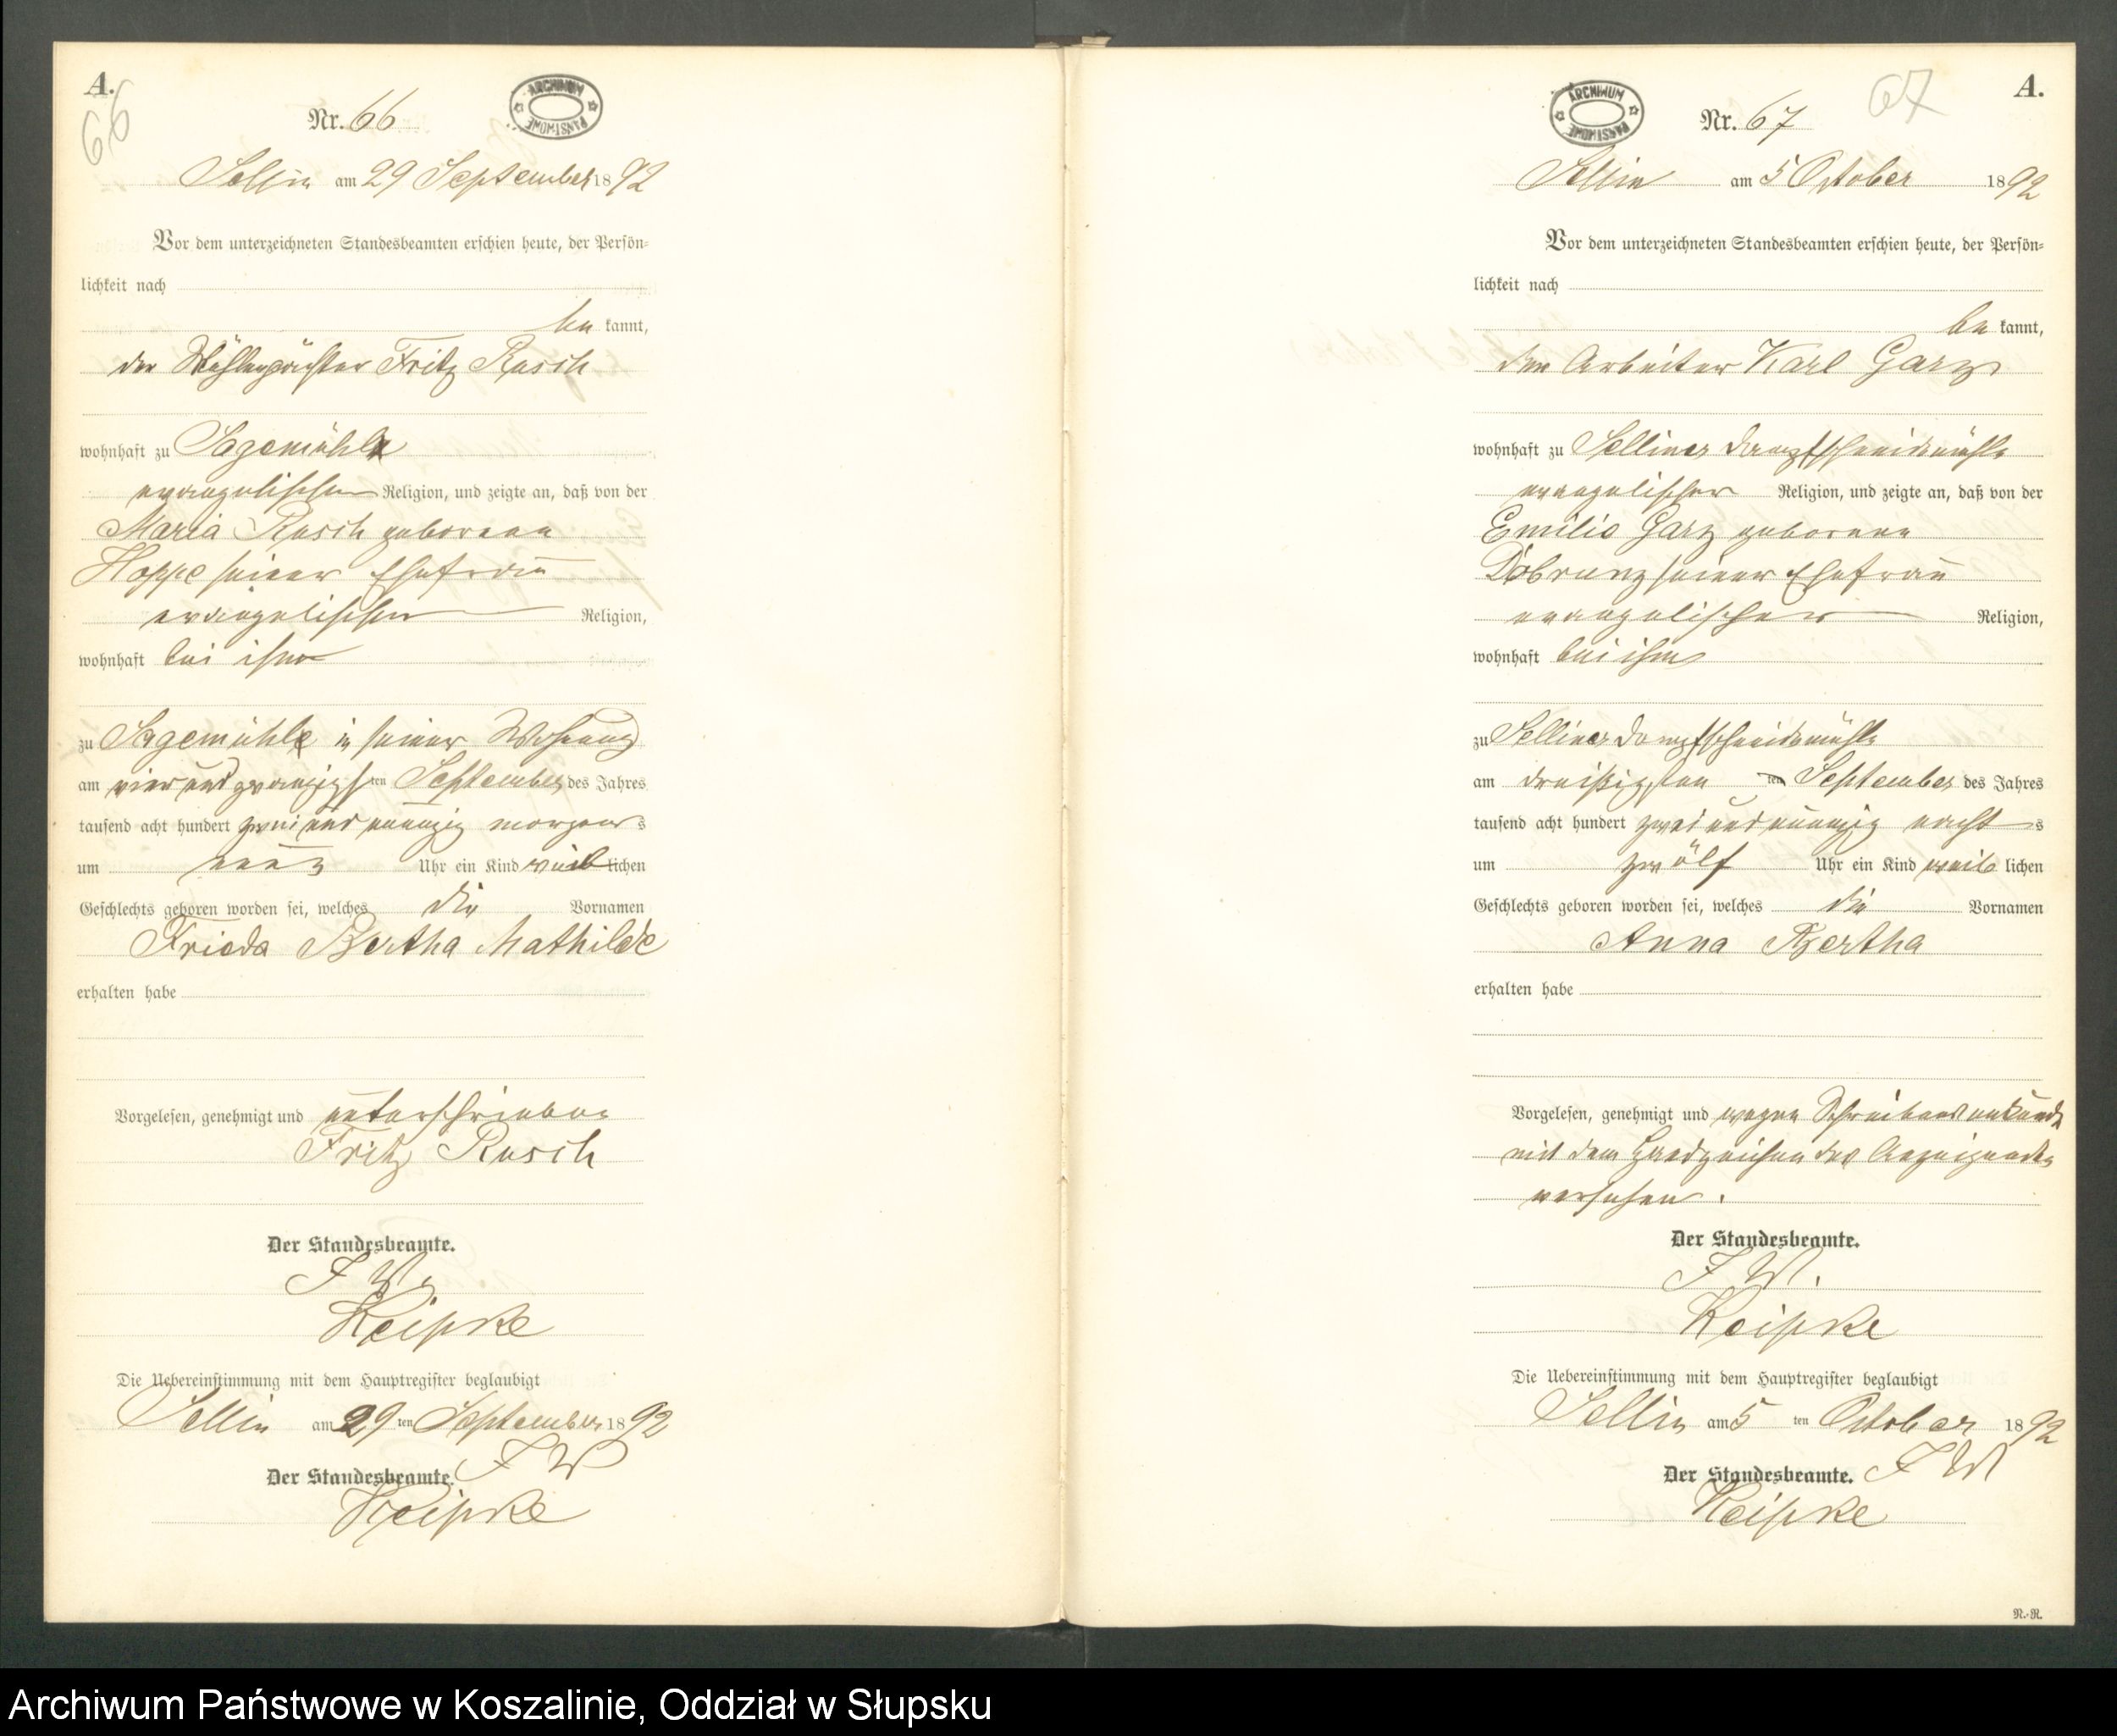 A.
66
Nr. 66
ARCHIWUM PAŃSTWOWE
Sellin am 29 September 1892
Vor dem unterzeichneten Standesbeamten erschien heute, der Persön-
lichkeit nach
be kannt,
der Mühlenpächter Fritz Rasch
wohnhaft zu Sagemühle
evangelischer Religion, und zeigte an, daß von der
Maria Rasch geborene
Hoppe seiner Ehefrau
evangelischer Religion,
wohnhaft bei ihm
zu Sagemühle in seiner Wohnung
am vier und zwanzigsten September des Jahres
tausend acht hundert zwei und neunzig morgens
um neun Uhr ein Kind weiblichen
Geschlechts geboren worden sei, welches die Vornamen
Frieda Bertha Mathilde
erhalten habe
Vorgelesen, genehmigt und unterschrieben
Fritz Rasch
Der Standesbeamte.
I W.
Keipke
Die Uebereinstimmung mit dem Hauptregister beglaubigt
Sellin am 29 ten September 1892
Der Standesbeamte. I W
Keipke
A.
67
Nr. 67
ARCHIWUM PAŃSTWOWE
Sellin am 5 October 1892
Vor dem unterzeichneten Standesbeamten erschien heute, der Persön-
lichkeit nach
be kannt,
der Arbeiter Karl Garz
wohnhaft zuSelliner Dampfschneidemühle
evangelischer Religion, und zeigte an, daß von der
Emilie Garz geborene
Dobrunz seiner Ehefrau
evangelischer Religion,
wohnhaft bei ihm
zu Selliner Dampfschneidemühle
am dreißigsten ten September des Jahres
tausend acht hundert zwei und neunzig nachts
um zwölf Uhr ein Kind weiblichen
Geschlechts geboren worden sei, welches die Vornamen
Anna Bertha
erhalten habe
Vorgelesen, genehmigt und wegen Schreibensunkunde
mit dem Handzeichen des Anzeigenden
versehen.
Der Standesbeamte.
I W.
Keipke
Die Uebereinstimmung mit dem Hauptregister beglaubigt
Sellin am 5 ten October 1892
Der Standesbeamte. I W
Keipke
N.-N.
Archiwum Państwowe w Koszalinie, Oddział w Słupsku